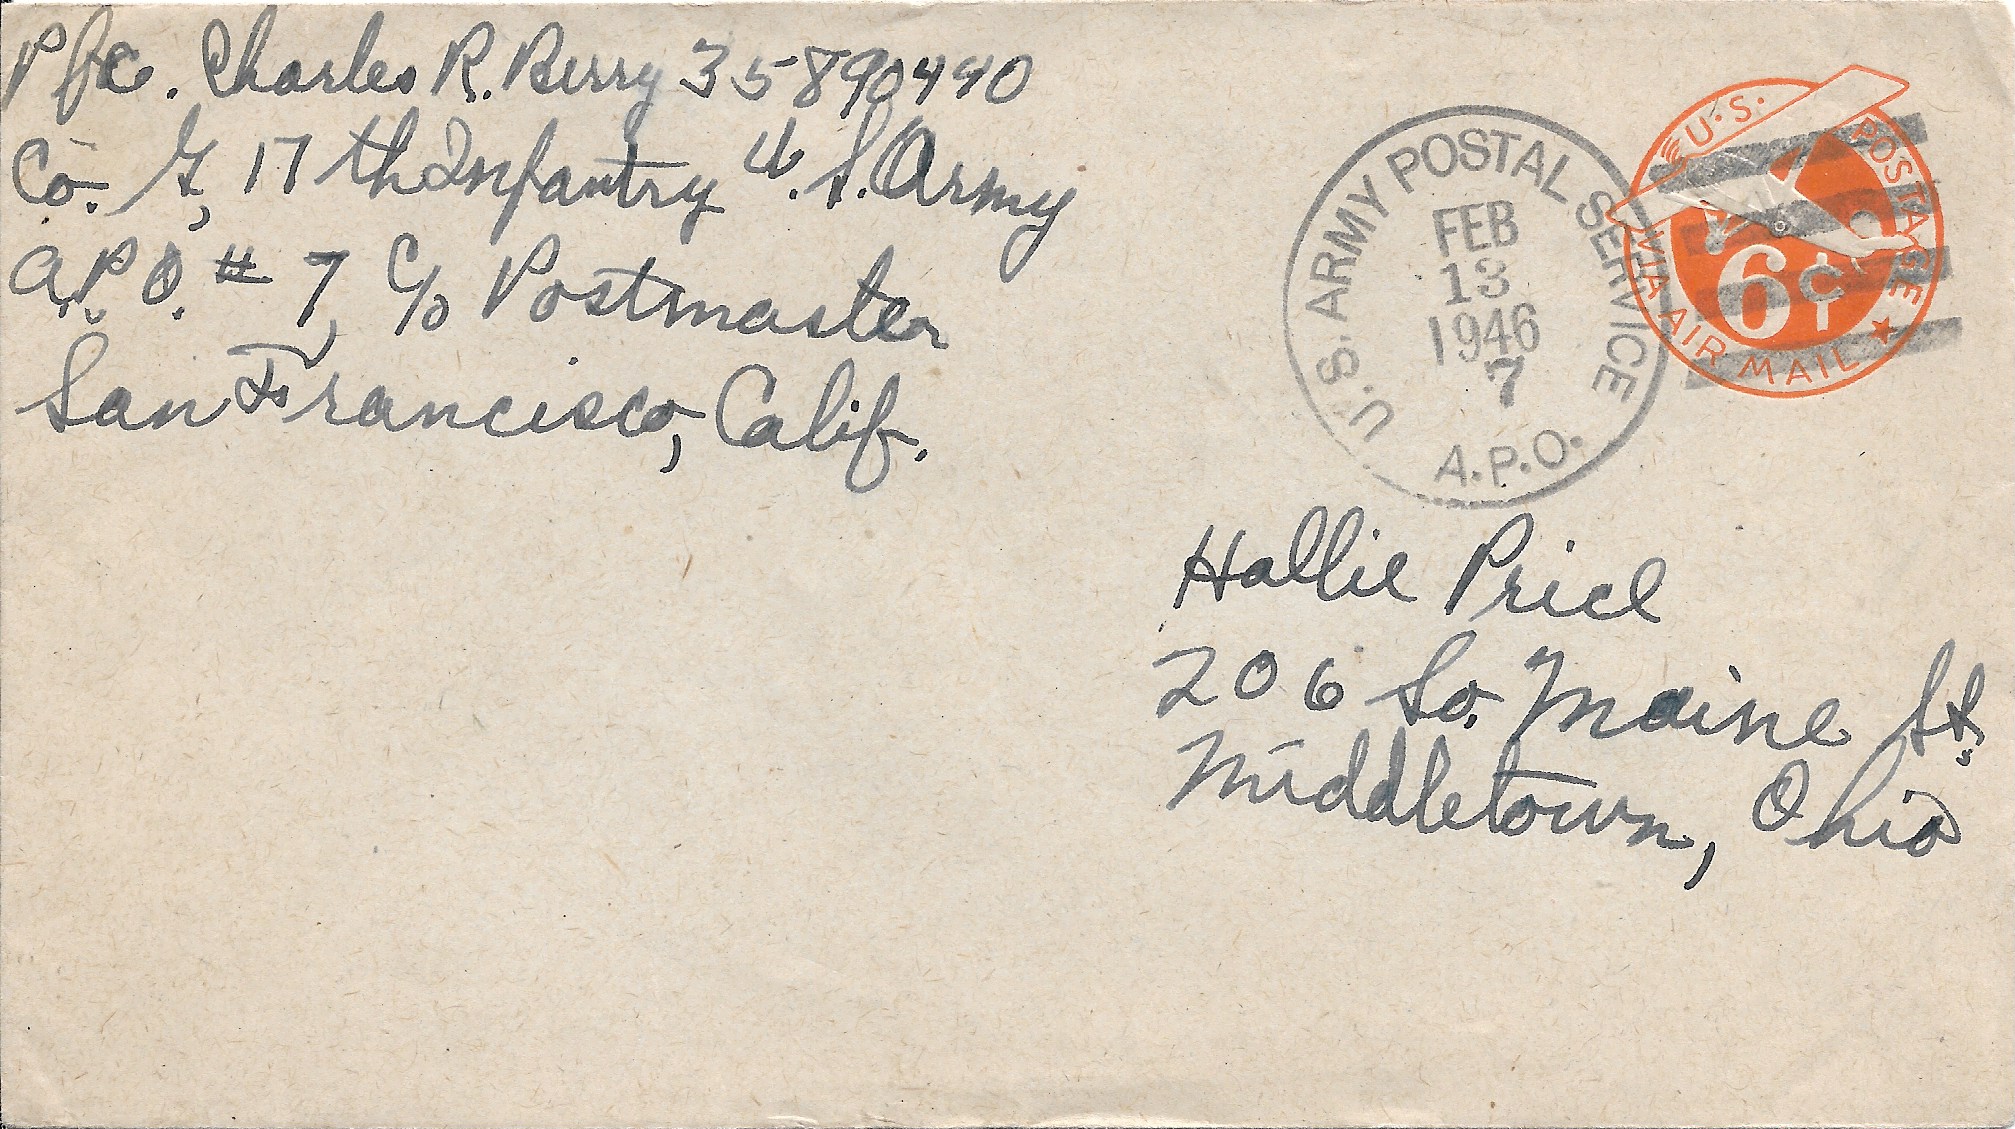 Pfc. Charles R. Berry 35890440
Co. G, 17th Infantry U.S. Army
A.P.O. # 7, c/o Postmaster
San Francisco, Calif.
U.S. ARMY POSTAL SERVICE
FEB
13
1946
7
A.P.O.
U.S. POSTAGE
6¢
VIA AIR MAIL
Hallie Price
206 So. Maine St.
Middletown, Ohio